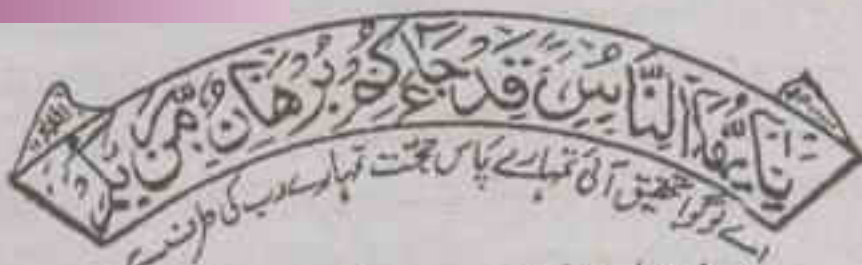 يَا أَيُّهَا النَّاسُ قَدْ جَاءَكُمْ بُرْهَانٌ مِّنْ
اے لوگو تحقیق آئی تمہارے پاس حجت تمہارے رب کی طرف سے